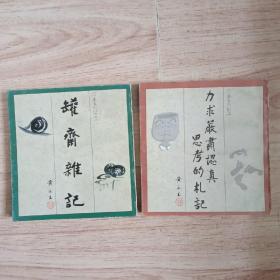 罐齋雜記
黄永玉
力求嚴肅認真
思考的札記
黄永玉